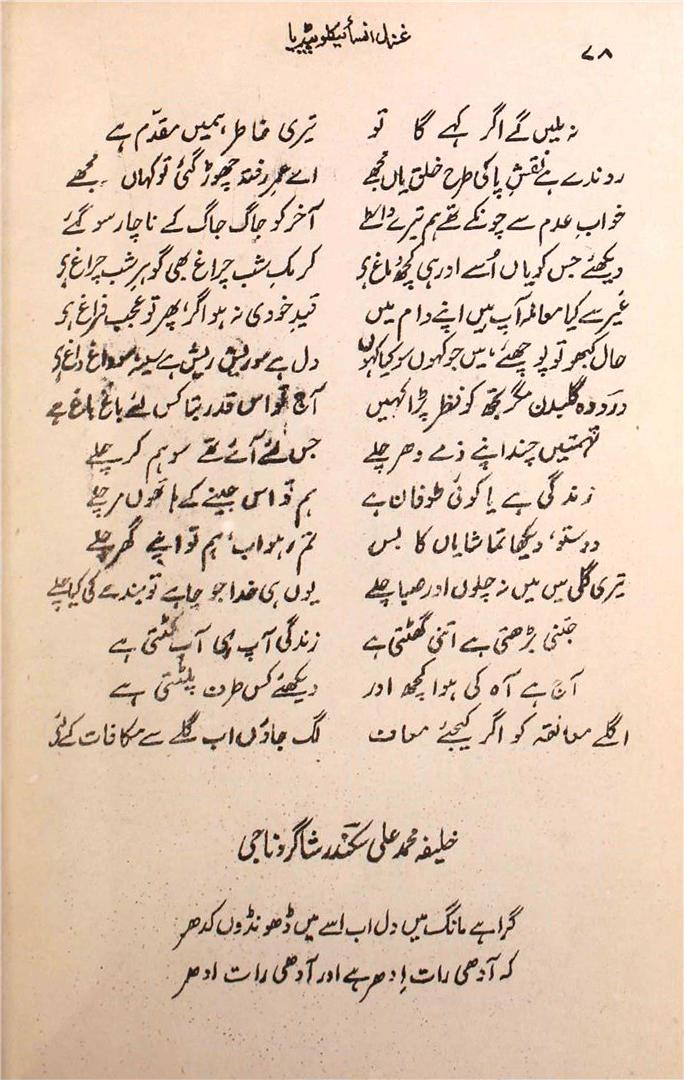 ۷۸
غزل انسائیکلوپیڈیا
نہ ملیں گے اگر کہے گا تو تیری خاطر ہمیں مقدّم ہے
روندے ہے نقشِ پا کی طرح خلق یاں مجھے اے عمرِ رفتہ چھوڑ گئی تو کہاں مجھے
خوابِ عدم سے چونکے تھے ہم تیرے واسطے آخر کو جاگ جاگ کے ناچار سو گئے
دیکھئے جس کو یاں اُسے اور ہی کچھ دماغ ہے کرمکِ شب چراغ بھی گوہرِ شب چراغ ہے
غیر سے کیا معاملہ آپ ہیں اپنے دام میں قیدِ خودی نہ ہو اگر، پھر تو عجب فراغ ہے
حال کبھو تو پوچھیے، میں جو کہوں سو کیا کہوں دل ہے سو ریش ریش ہے سینہ سو داغ داغ ہے
درد وہ گلبدن مگر تجھ کو نظر پڑا کہیں آج تو اس قدر بتا کس لئے باغ باغ ہے
تہمتیں چند اپنے ذمے دھر چلے جس لئے آئے تھے سو ہم کر چلے
زندگی ہے یا کوئی طوفان ہے ہم تو اس جینے کے ہاتھوں مر چلے
دوستو، دیکھا تماشا یاں کا بس تم رہو اب، ہم تو اپنے گھر چلے
تیری گلی میں میں نہ چلوں اور صبا چلے یوں ہی خدا جو چاہے تو بندے کی کیا چلے
جتنی بڑھتی ہے اتنی گھٹتی ہے زندگی آپ ہی آپ کٹتی ہے
آج ہے آہ کی ہوا کچھ اور دیکھئے کس طرف پلٹتی ہے
اگلے معانقہ کو اگر کیجئے معاف لگ جاؤں اب گلے سے مکافات کے لئے
خلیفہ محمد علی سکندر شاگردِ ناجی
گرا ہے مانگ میں دل اب اسے میں ڈھونڈوں کدھر
کہ آدھی رات اِدھر ہے اور آدھی رات ادھر